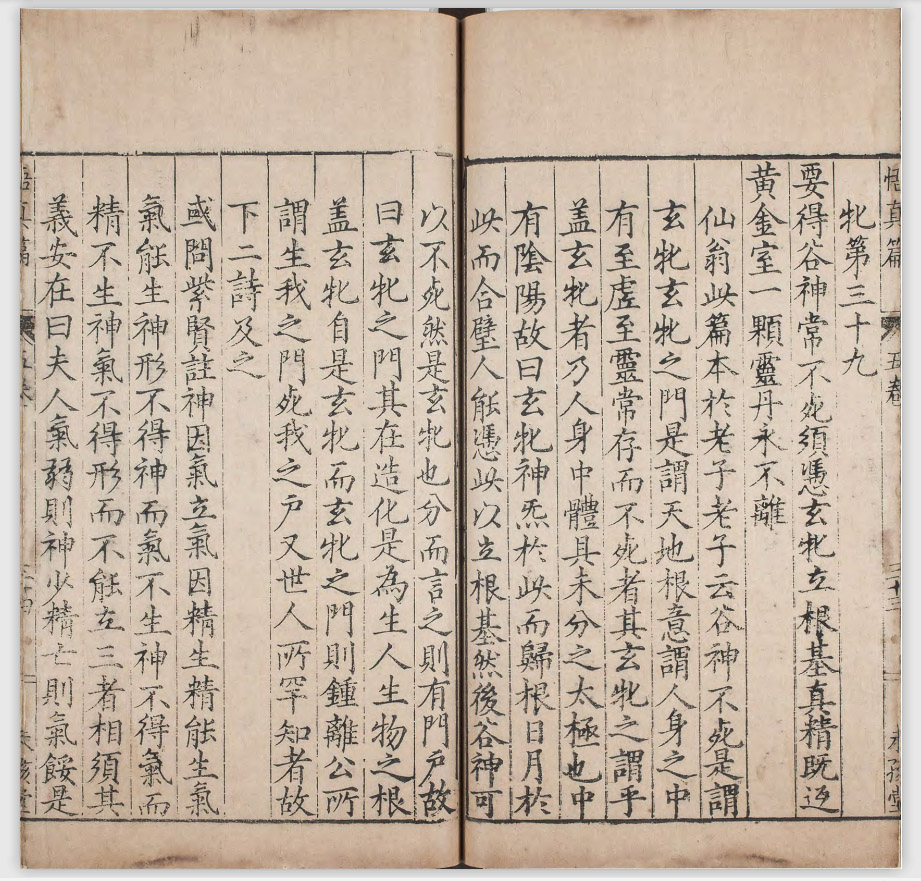 悟真篇 五卷 二十三
牝第三十九
要得谷神常不死須憑玄牝立根基真精既返
黄金室一顆靈丹永不離
仙翁此篇本於老子老子云谷神不死是謂
玄牝玄牝之門是謂天地根意謂人身之中
有至虛至靈常存而不死者其玄牝之謂乎
盖玄牝者乃人身中體具未分之太極也中
有陰陽故曰玄牝神炁於此而歸根日月於
此而合璧人能憑此以立根基然後谷神可
以不死然是玄牝也分而言之則有門戶故
曰玄牝之門其在造化是為生人生物之根
盖玄牝自是玄牝而玄牝之門則鍾離公所
謂生我之門死我之户又世人所罕知者故
下二詩及之
或問紫賢註神因氣立氣因精生精能生氣
氣能生神形不得神而氣不生神不得氣而
精不生神氣不得形而不能立三者相須其
義安在曰夫人氣弱則神少精亡則氣餒是
悟真篇